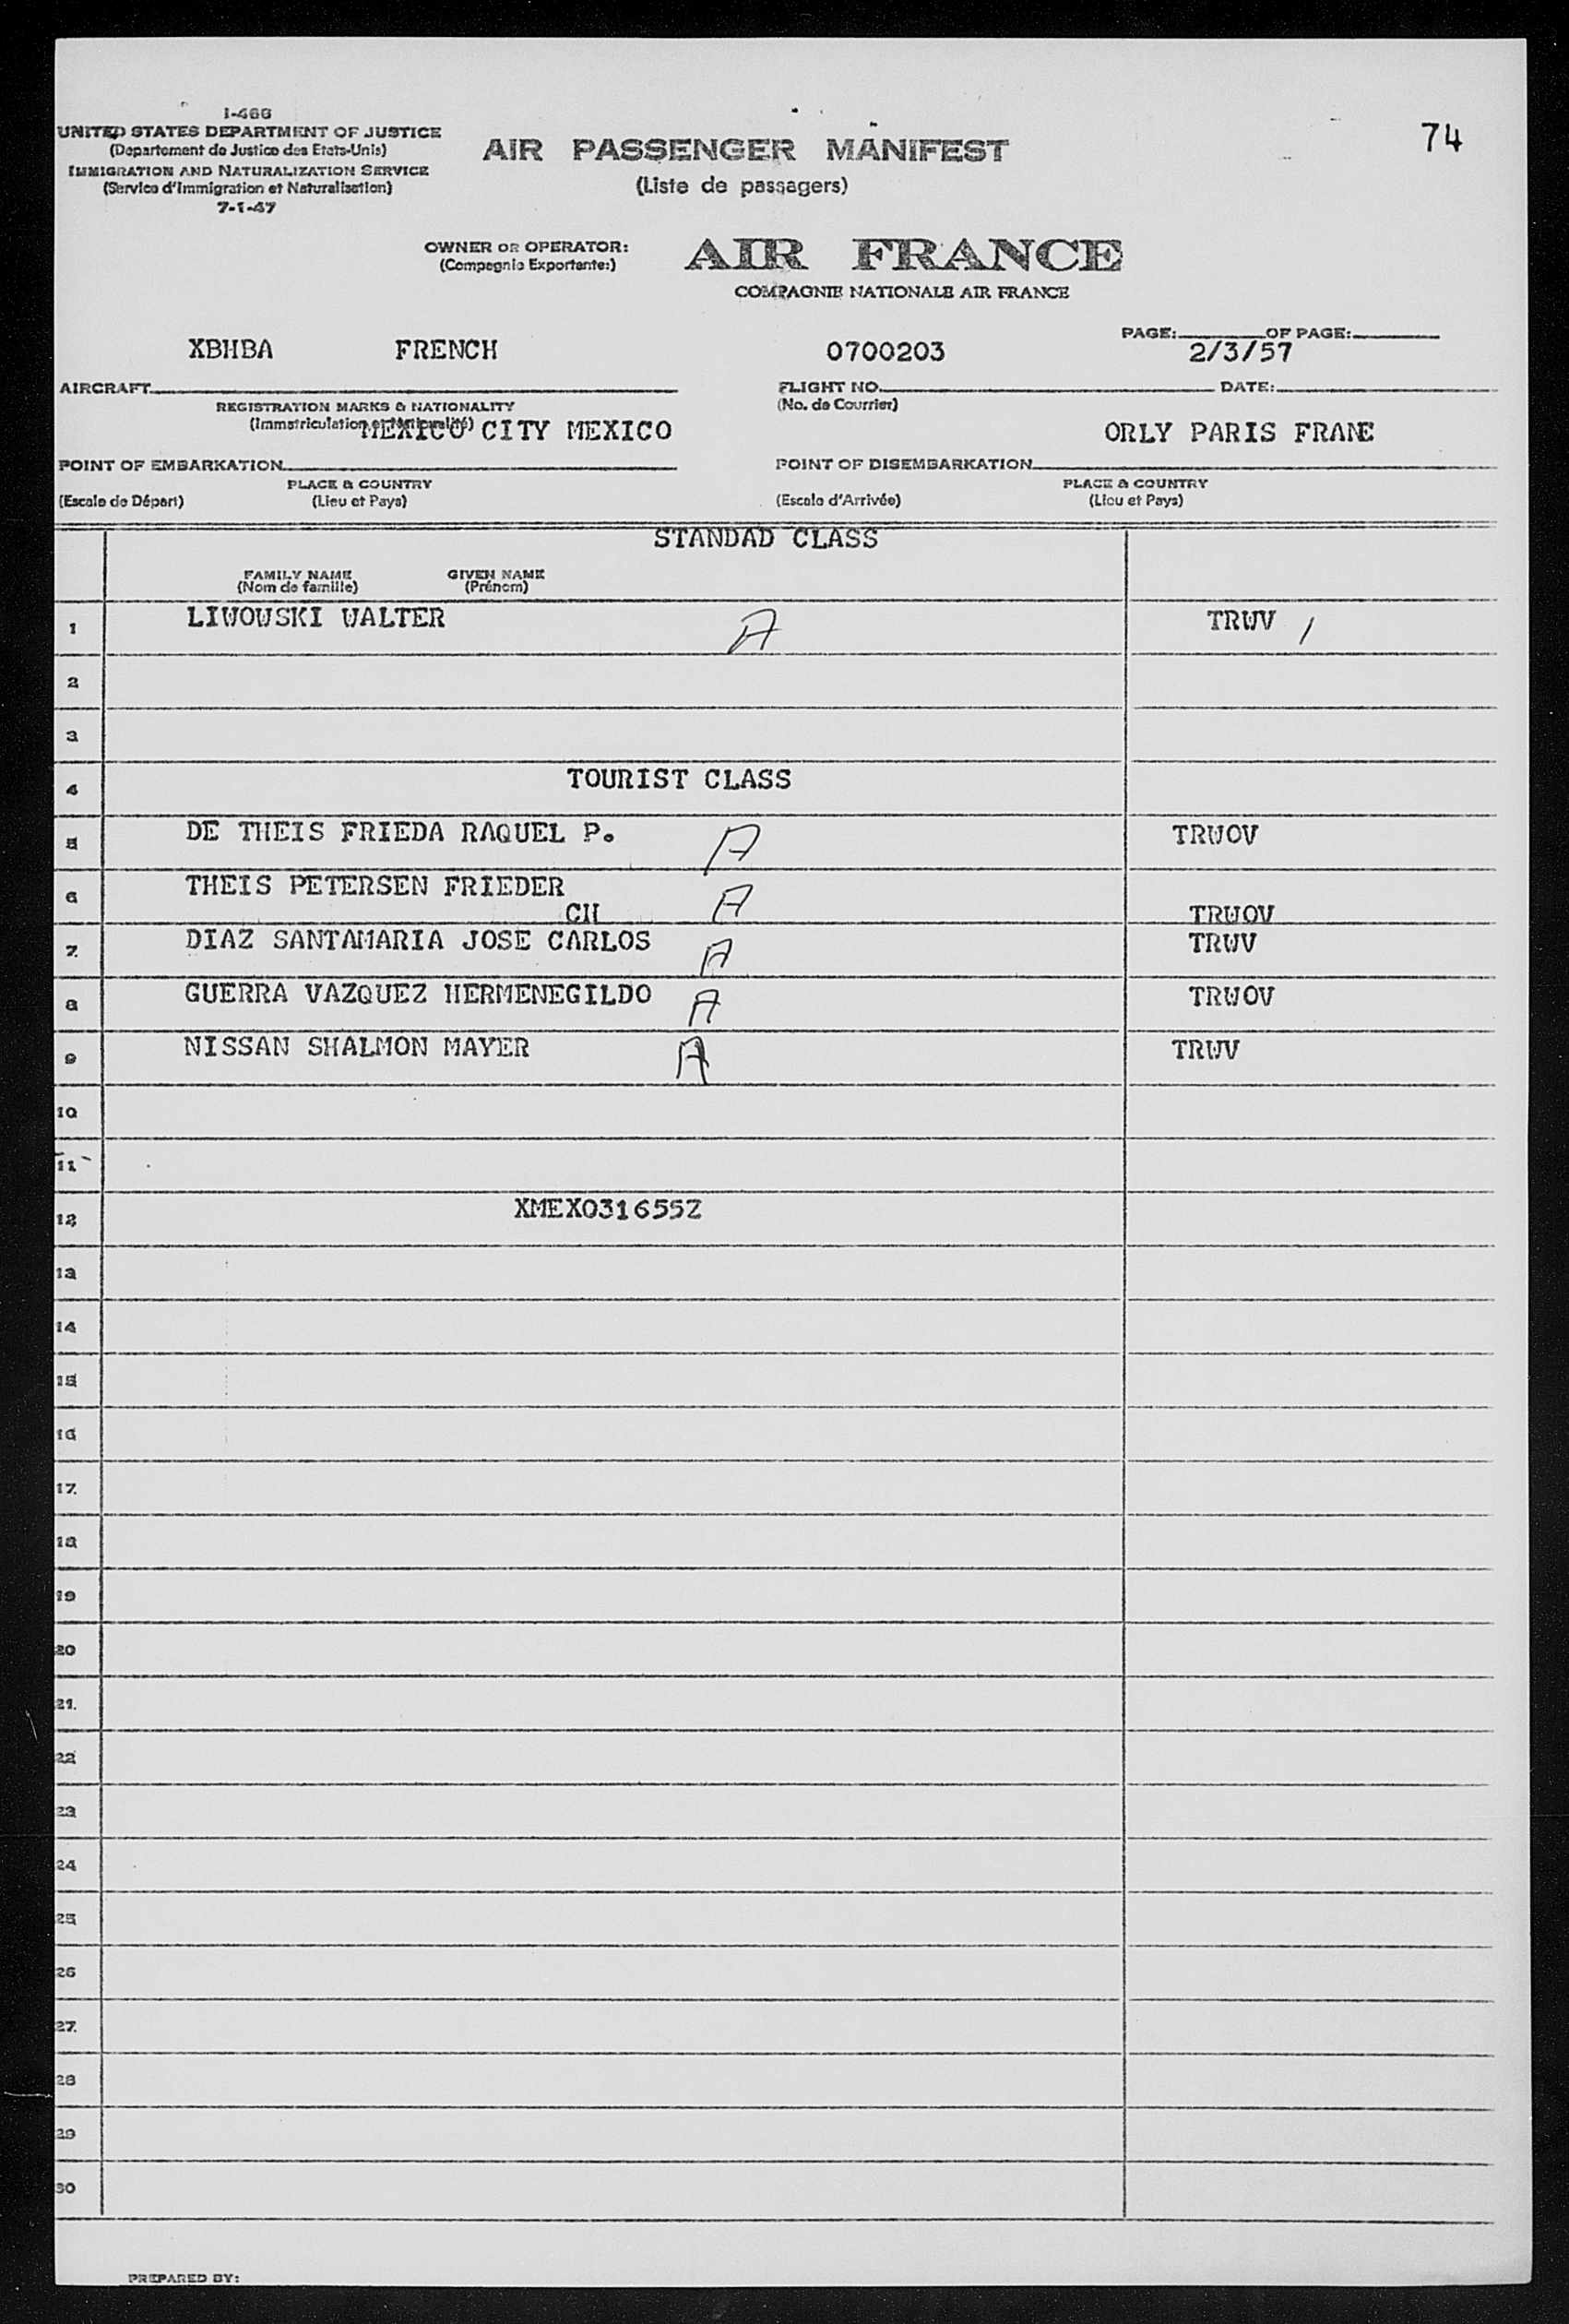 I-466
UNITED STATES DEPARTMENT OF JUSTICE
(Departement de Justice des Etats-Unis)
IMMIGRATION AND NATURALIZATION SERVICE
(Service d'Immigration et Naturalisation)
7-1-47
AIR PASSENGER MANIFEST
(Liste de passagers)
74
OWNER OR OPERATOR:
(Compagnie Exportante:)
AIR FRANCE
COMPAGNIE NATIONALE AIR FRANCE
PAGE: OF PAGE:
XBHBA FRENCH 0700203 2/3/57
AIRCRAFT FLIGHT NO. DATE:
REGISTRATION MARKS & NATIONALITY (No. de Courrier)
(Immatriculation et Nationalité)
MEXICO CITY MEXICO ORLY PARIS FRANE
POINT OF EMBARKATION POINT OF DISEMBARKATION
PLACE & COUNTRY PLACE & COUNTRY
(Escale de Départ) (Lieu et Pays) (Escale d'Arrivée) (Lieu et Pays)
STANDAD CLASS
FAMILY NAME GIVEN NAME
(Nom de famille) (Prénom)
1 LIWOWSKI WALTER A TRWV /
2
3
4 TOURIST CLASS
5 DE THEIS FRIEDA RAQUEL P. A TRWOV
6 THEIS PETERSEN FRIEDER A
CH TRWOV
7 DIAZ SANTAMARIA JOSE CARLOS A TRWV
8 GUERRA VAZQUEZ HERMENEGILDO A TRWOV
9 NISSAN SHALMON MAYER A TRWV
10
11
12 XMEX031655Z
13
14
15
16
17
18
19
20
21
22
23
24
25
26
27
28
29
30
PREPARED BY: